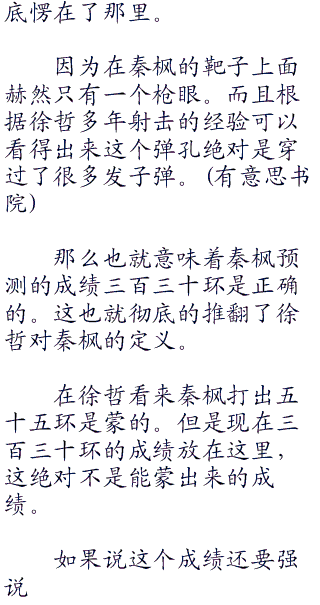 底愣在了那里。
因为在秦枫的靶子上面
赫然只有一个枪眼。而且根
据徐哲多年射击的经验可以
看得出来这个弹孔绝对是穿
过了很多发子弹。(有意思书
院)
那么也就意味着秦枫预
测的成绩三百三十环是正确
的。这也就彻底的推翻了徐
哲对秦枫的定义。
在徐哲看来秦枫打出五
十五环是蒙的。但是现在三
百三十环的成绩放在这里，
这绝对不是能蒙出来的成
绩。
如果说这个成绩还要强
说